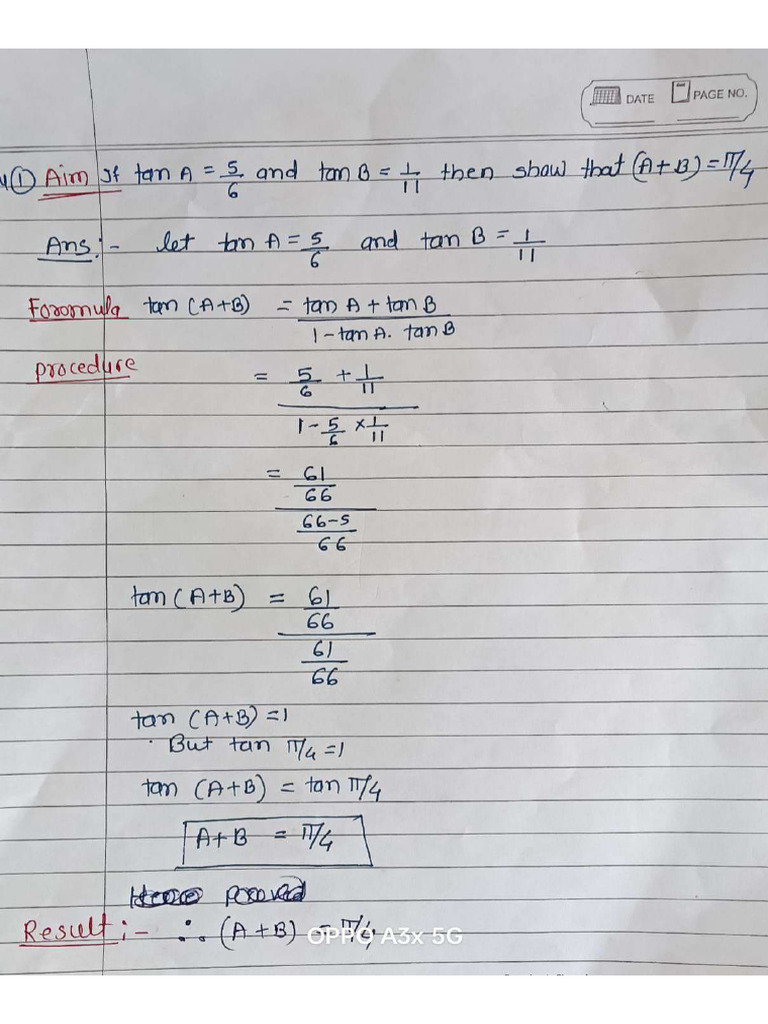 DATE PAGE NO.
① Aim If tan A = 5/6 and tan B = 1/11 then show that (A+B) = π/4
Ans:- let tan A = 5/6 and tan B = 1/11
Foromula tan (A+B) = tan A + tan B / 1 - tan A . tan B
procedure
= 5/6 + 1/11
1 - 5/6 × 1/11
= 61/66
66-5/66
tan (A+B) = 61/66
61/66
tan (A+B) = 1
But tan π/4 = 1
tan (A+B) = tan π/4
A+B = π/4
Hence
Result:- ∴ (A+B) = π/4
OPPO A3x 5G